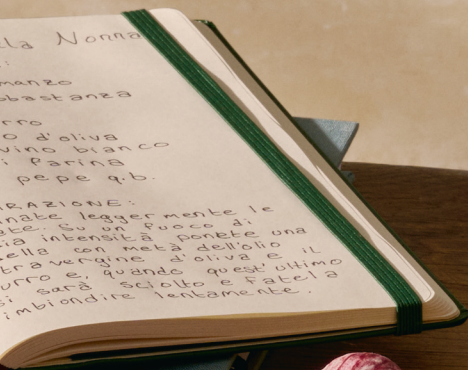 lla Nonna
:
manzo
bbastanza
rro
o d'oliva
vino bianco
i farina
pepe q.b.
RAZIONE:
nate leggermente le
ate. Su un fuoco di
ia intensità ponete una
ella con metà dell'olio
tra vergine d'oliva e il
urro e, quando quest'ultimo
si sarà sciolto e fatela
imbiondire lentamente.